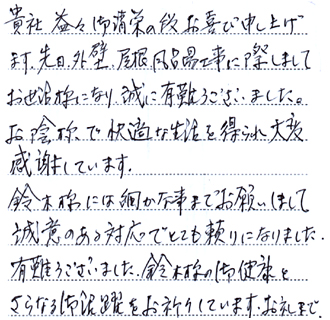 貴社益々御清栄の段お喜び申し上げ
ます。先日、外壁、屋根、風呂場工事に際しまして
お世話様になり誠に有難うございました。
お陰様で快適な生活を得られ大変
感謝しています。
鈴木様には細かな事までお願いしまして
誠意のある対応でとても頼りになりました。
有難うございました。鈴木様の御健康と
さらなる御活躍をお祈りしています。お礼まで。